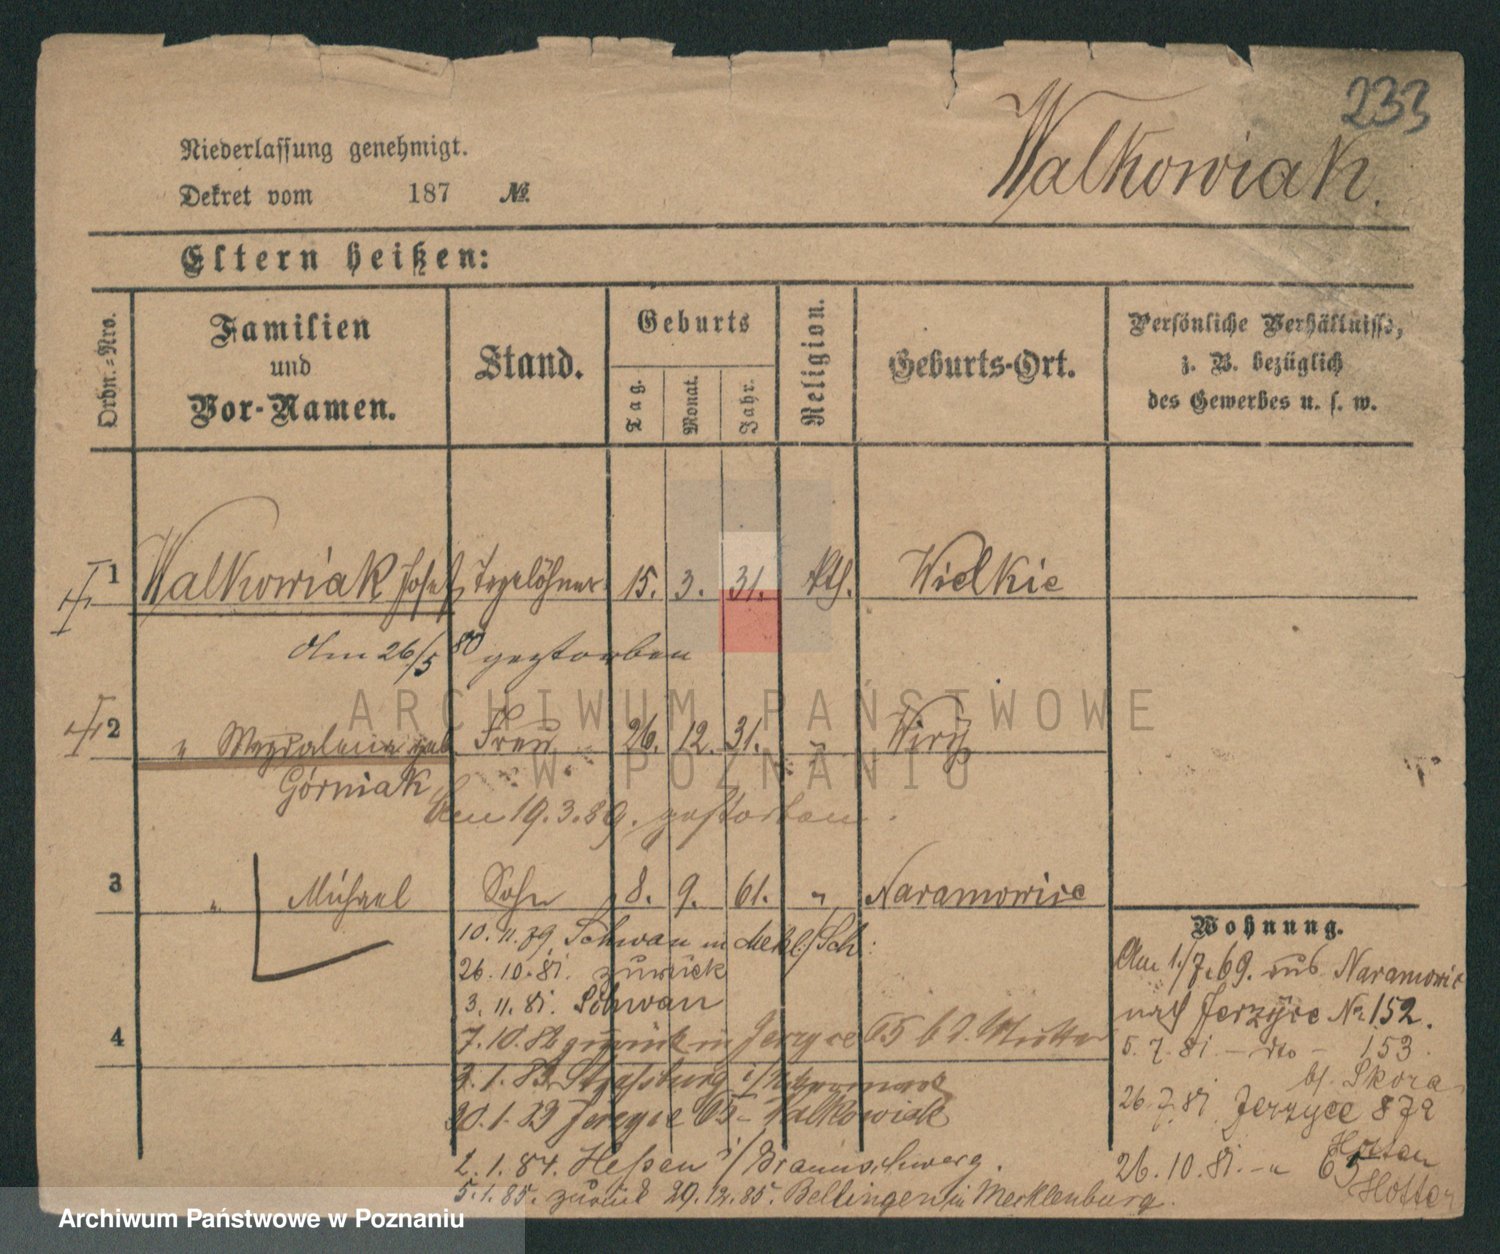 233
Walkowiak.
Niederlassung genehmigt.
Dekret vom 187 №
Eltern heißen:
Ordn.-Nro.
Familien und Vor-Namen.
Stand.
Geburts
Tag.
Monat.
Jahr.
Religion.
Geburts-Ort.
Persönliche Verhältnisse, z. B. bezüglich des Gewerbes u. s. w.
1 Walkowiak Josef Tagelöhner 15. 3. 31. kth. Wielkie
Am 26/5 80 gestorben
2 " Magdalena geb. Frau 26. 12. 31. " Wiry
Górniak
Den 19.3.89. gestorben.
3 " Michael Sohn 8. 9. 61. " Naramowice
10.11.79 Schwan in Mekl/Sch:
26.10.81. zurück
3.11.81. Schwan
4
7.10.82 zurück in Jerzyce 65 b d. Mutter
3.1.83 Strassburg i/
30.1.83 Jerzyce 65 Walkowiak
2.1.84. Hessen i/Braunschweig.
5.1.85. zurück 29.12.85. Bellingen in Mecklenburg.
Wohnung.
Am 1/7.69. aus Naramowic
nach Jerzyce No 152.
5.7.81. – dto – 153
bf. Skora
26.7.81 Jerzyce 872
26.10.81. – " 65
Hotter
ARCHIWUM PAŃSTWOWE
W POZNANIU
Archiwum Państwowe w Poznaniu